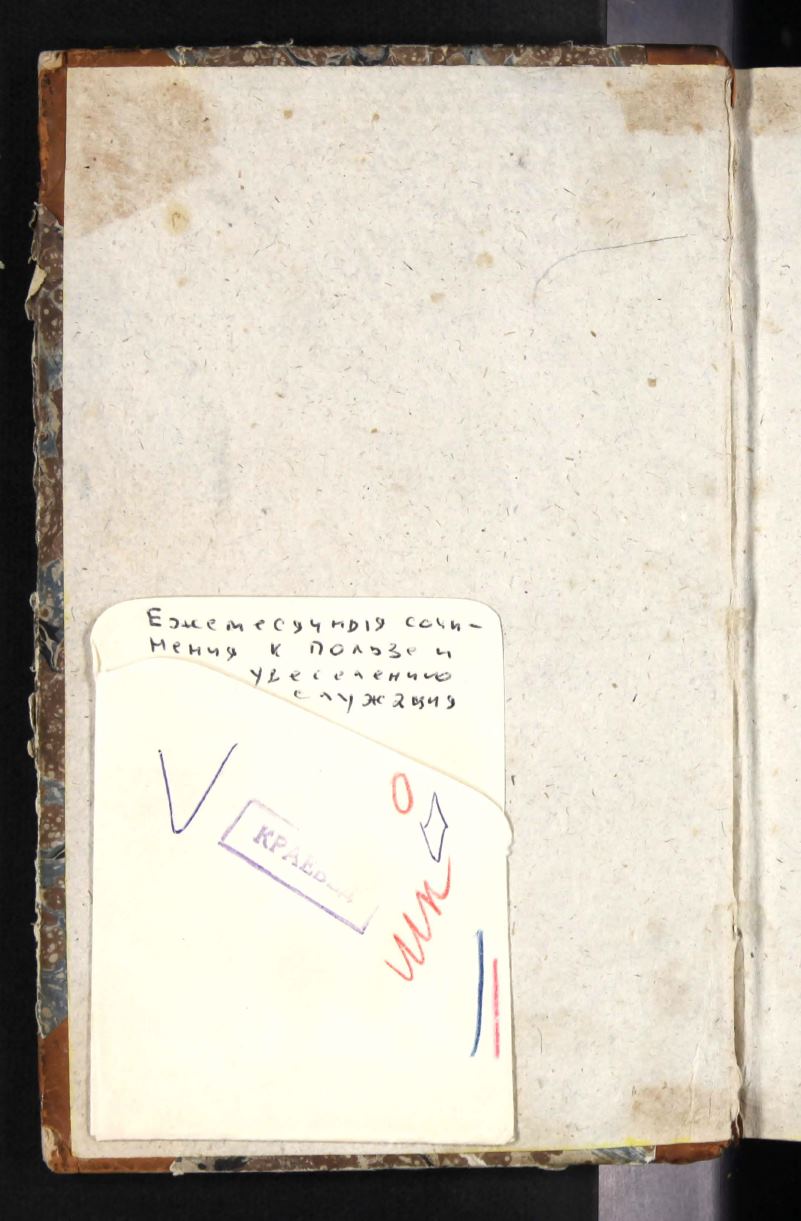 Ежемесячныя сочи-
нения к пользе и
увеселению
служащия
КРАЕВЕД
О
шк